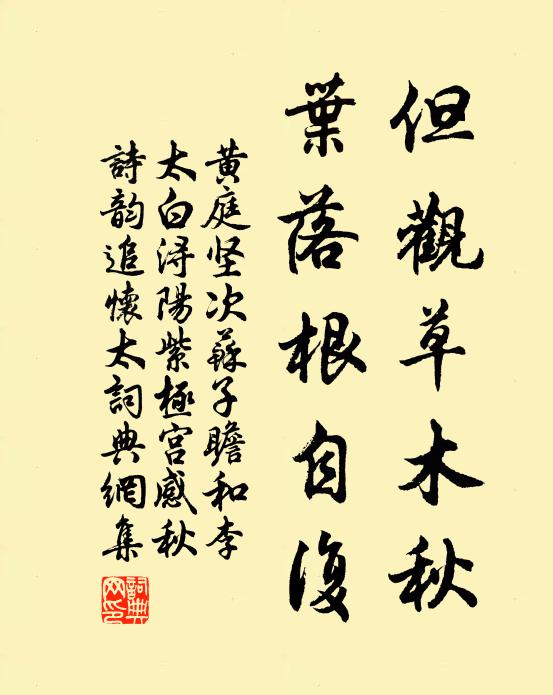 但觀草木秋
葉落根自復
黄庭坚次蘇子瞻和李
太白浔陽紫極宫感秋
詩韵追懷太詞典網集
詞典網印